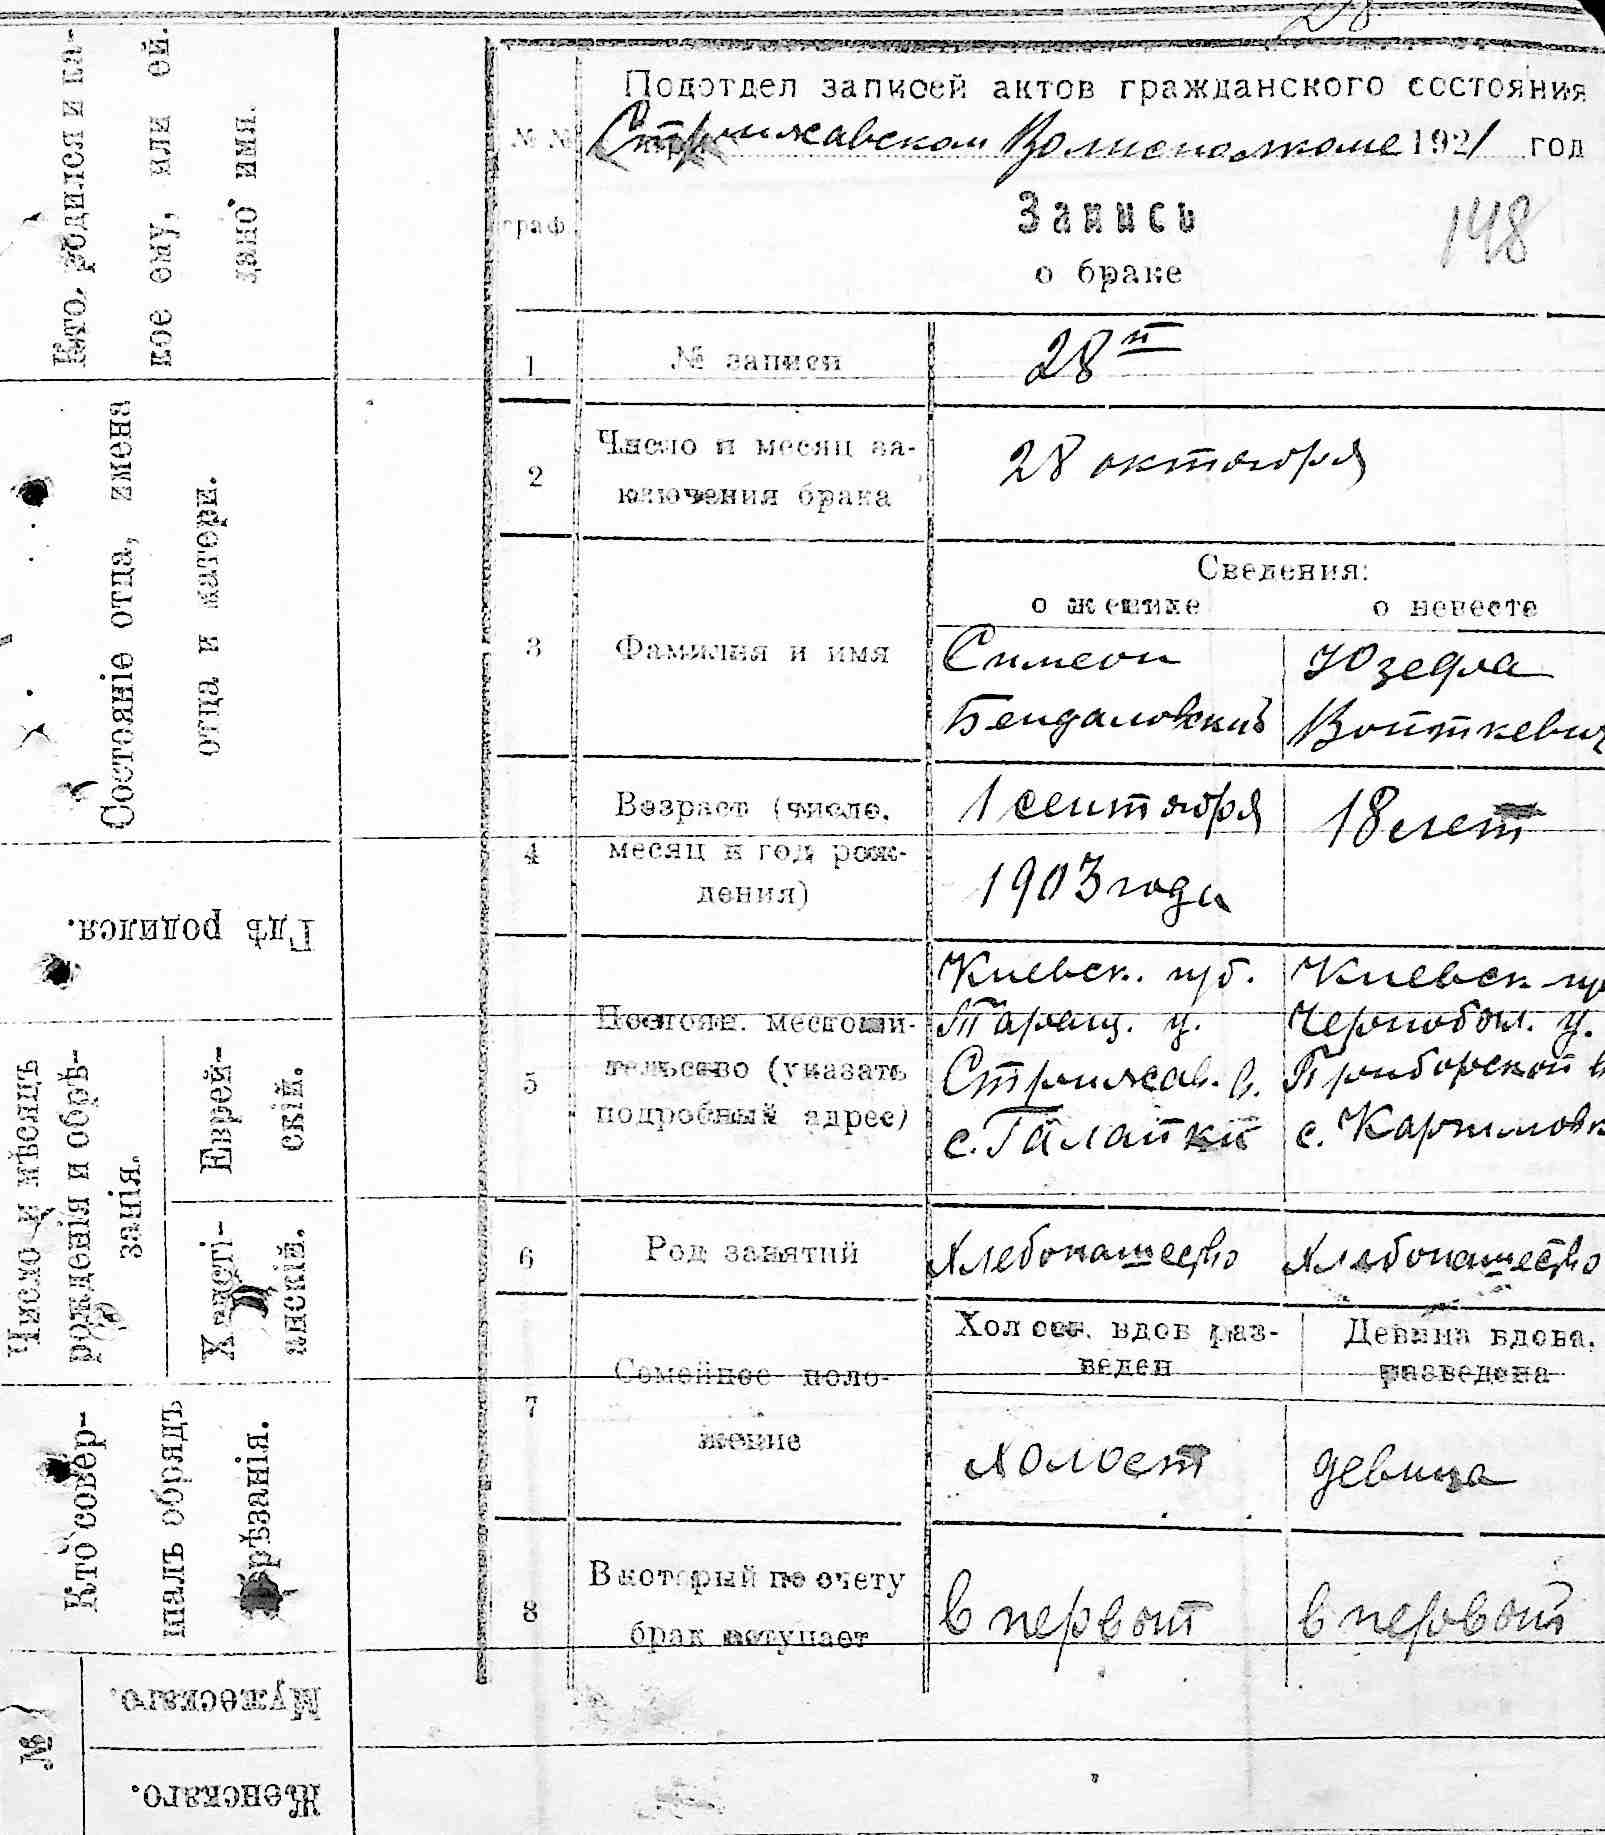 28
Подотдел записей актов гражданского состояния
№ № Стрижавском Волисполкоме 1921 год
граф
Запись
148
о браке
1 № записи 28й
2 Число и месяц за-
ключения брака
28 октября
Сведения:
о женихе о невесте
3 Фамилия и имя
Симеон Юзефа
Бендаловский Войткевич
4 Возраст (число,
месяц и год рож-
дения)
1 сентября 18 лет
1903 года
5 Постоян. местожи-
тельство (указать
подробный адрес)
Киевск. губ. Киевск гу
Таращ. у. Чернобыл. у.
Стрижав. в. Приборской в
с. Галайки с. Карпиловк
6 Род занятий Хлебопашество Хлебопашество
7 Семейное поло-
жение
Холост. вдов раз-
веден
Девица вдова,
разведена
холост девица
8 В который по счету
брак вступает
в первый в первый
Кто родился и ка-
кое ему, или ей.
дано имя.
Состояніе отца, имена
отца и матери.
Гдѣ родился.
Число и мѣсяцъ
рожденія и обрѣ-
занія.
Еврей-
скій.
Христі-
анскій.
Кто совер-
шалъ обрядъ
обрѣзанія.
№
Мужескаго.
Женскаго.